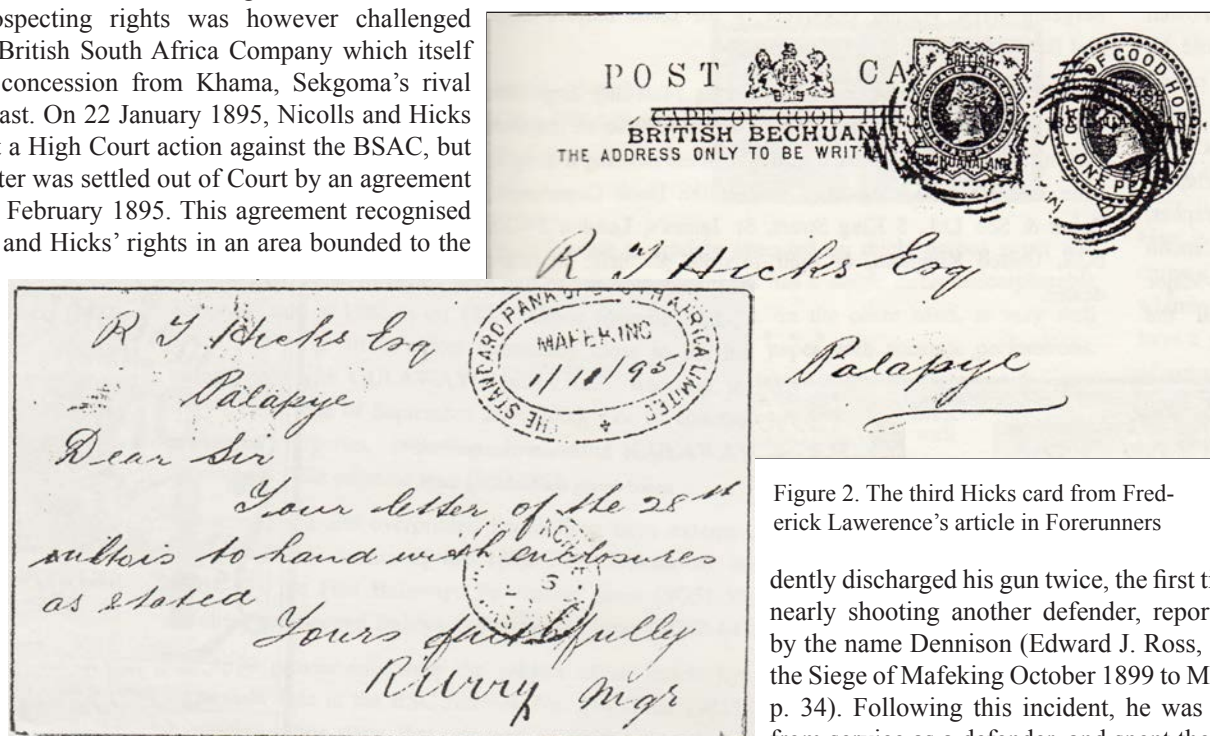 ospecting rights was however challenged
British South Africa Company which itself
concession from Khama, Sekgoma's rival
ast. On 22 January 1895, Nicolls and Hicks
t a High Court action against the BSAC, but
ter was settled out of Court by an agreement
February 1895. This agreement recognised
and Hicks' rights in an area bounded to the
POST CA
CAPE OF GOOD H
BRITISH BECHUANA
THE ADDRESS ONLY TO BE WRITT
BRITISH
BECHUANALAND
OF GOOD HO
ONE PE
R T Hicks Esq
Palapye
R T Hicks Esq
Palapye
THE STANDARD BANK OF SOUTH AFRICA LIMITED
MAFEKING
1/11/95
Dear Sir
Your letter of the 28th
to hand with enclosures
as stated
Yours faithfully
Mgr
Figure 2. The third Hicks card from Fred-
erick Lawerence's article in Forerunners
dently discharged his gun twice, the first t
nearly shooting another defender, repor
by the name Dennison (Edward J. Ross,
the Siege of Mafeking October 1899 to M
p. 34). Following this incident, he was
from service as a defender, and spent the